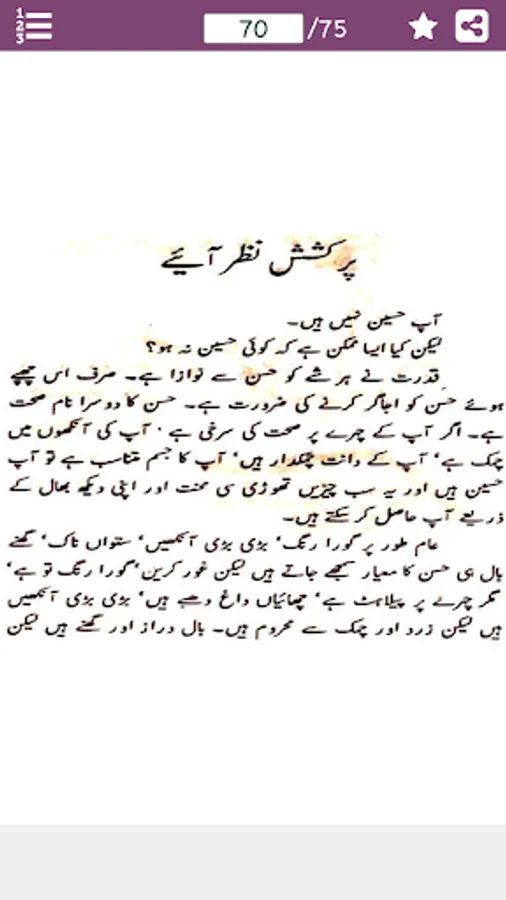 1
2
3
70 /75
پرکشش نظر آئیے
آپ حسین نہیں ہیں۔
لیکن کیا ایسا ممکن ہے کہ کوئی حسین نہ ہو؟
قدرت نے ہر شے کو حسن سے نوازا ہے۔ صرف اس چھپے
ہوئے حسن کو اجاگر کرنے کی ضرورت ہے۔ حسن کا دوسرا نام صحت
ہے۔ اگر آپ کے چہرے پر صحت کی سرخی ہے ‘ آپ کی آنکھوں میں
چمک ہے‘ آپ کے دانت چمکدار ہیں‘ آپ کا جسم متناسب ہے تو آپ
حسین ہیں اور یہ سب چیزیں تھوڑی سی محنت اور اپنی دیکھ بھال کے
ذریعے آپ حاصل کر سکتے ہیں۔
عام طور پر گورا رنگ‘ بڑی بڑی آنکھیں‘ ستواں ناک‘ گھنے
بال ہی حسن کا معیار سمجھے جاتے ہیں لیکن غور کریں‘ گورا رنگ تو ہے‘
مگر چہرے پر پیلاہٹ ہے‘ چھائیاں داغ دھبے ہیں‘ بڑی بڑی آنکھیں
ہیں لیکن زرد اور چمک سے محروم ہیں۔ بال دراز اور گھنے ہیں لیکن